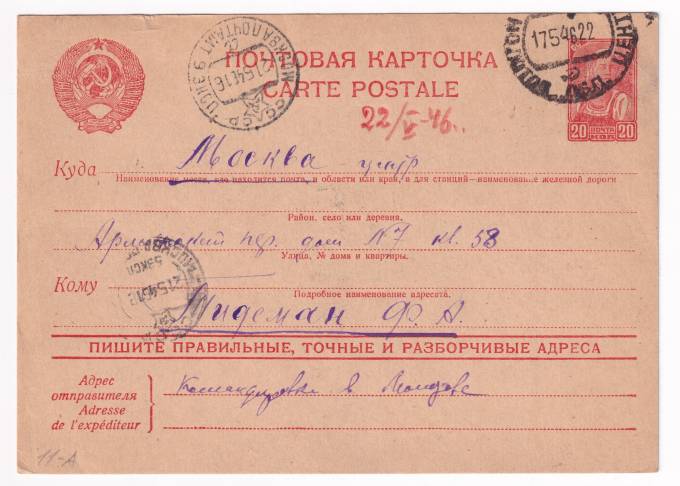 ПОЧТОВАЯ КАРТОЧКА
CARTE POSTALE
17 5 46 22
22/V-46.
20 ПОЧТА 20
КОП
Куда Москва центр
Наименование места, где находится почта, и области или края, а для станций—наименование железной дороги
Район, село или деревня.
пер. дом №7 кв. 58
Улица, № дома и квартиры.
Кому
Подробное наименование адресата.
Видеман Ф. А.
ПИШИТЕ ПРАВИЛЬНЫЕ, ТОЧНЫЕ И РАЗБОРЧИВЫЕ АДРЕСА
Адрес
отправителя
Adresse
de l'expéditeur
Командировка в
11-А